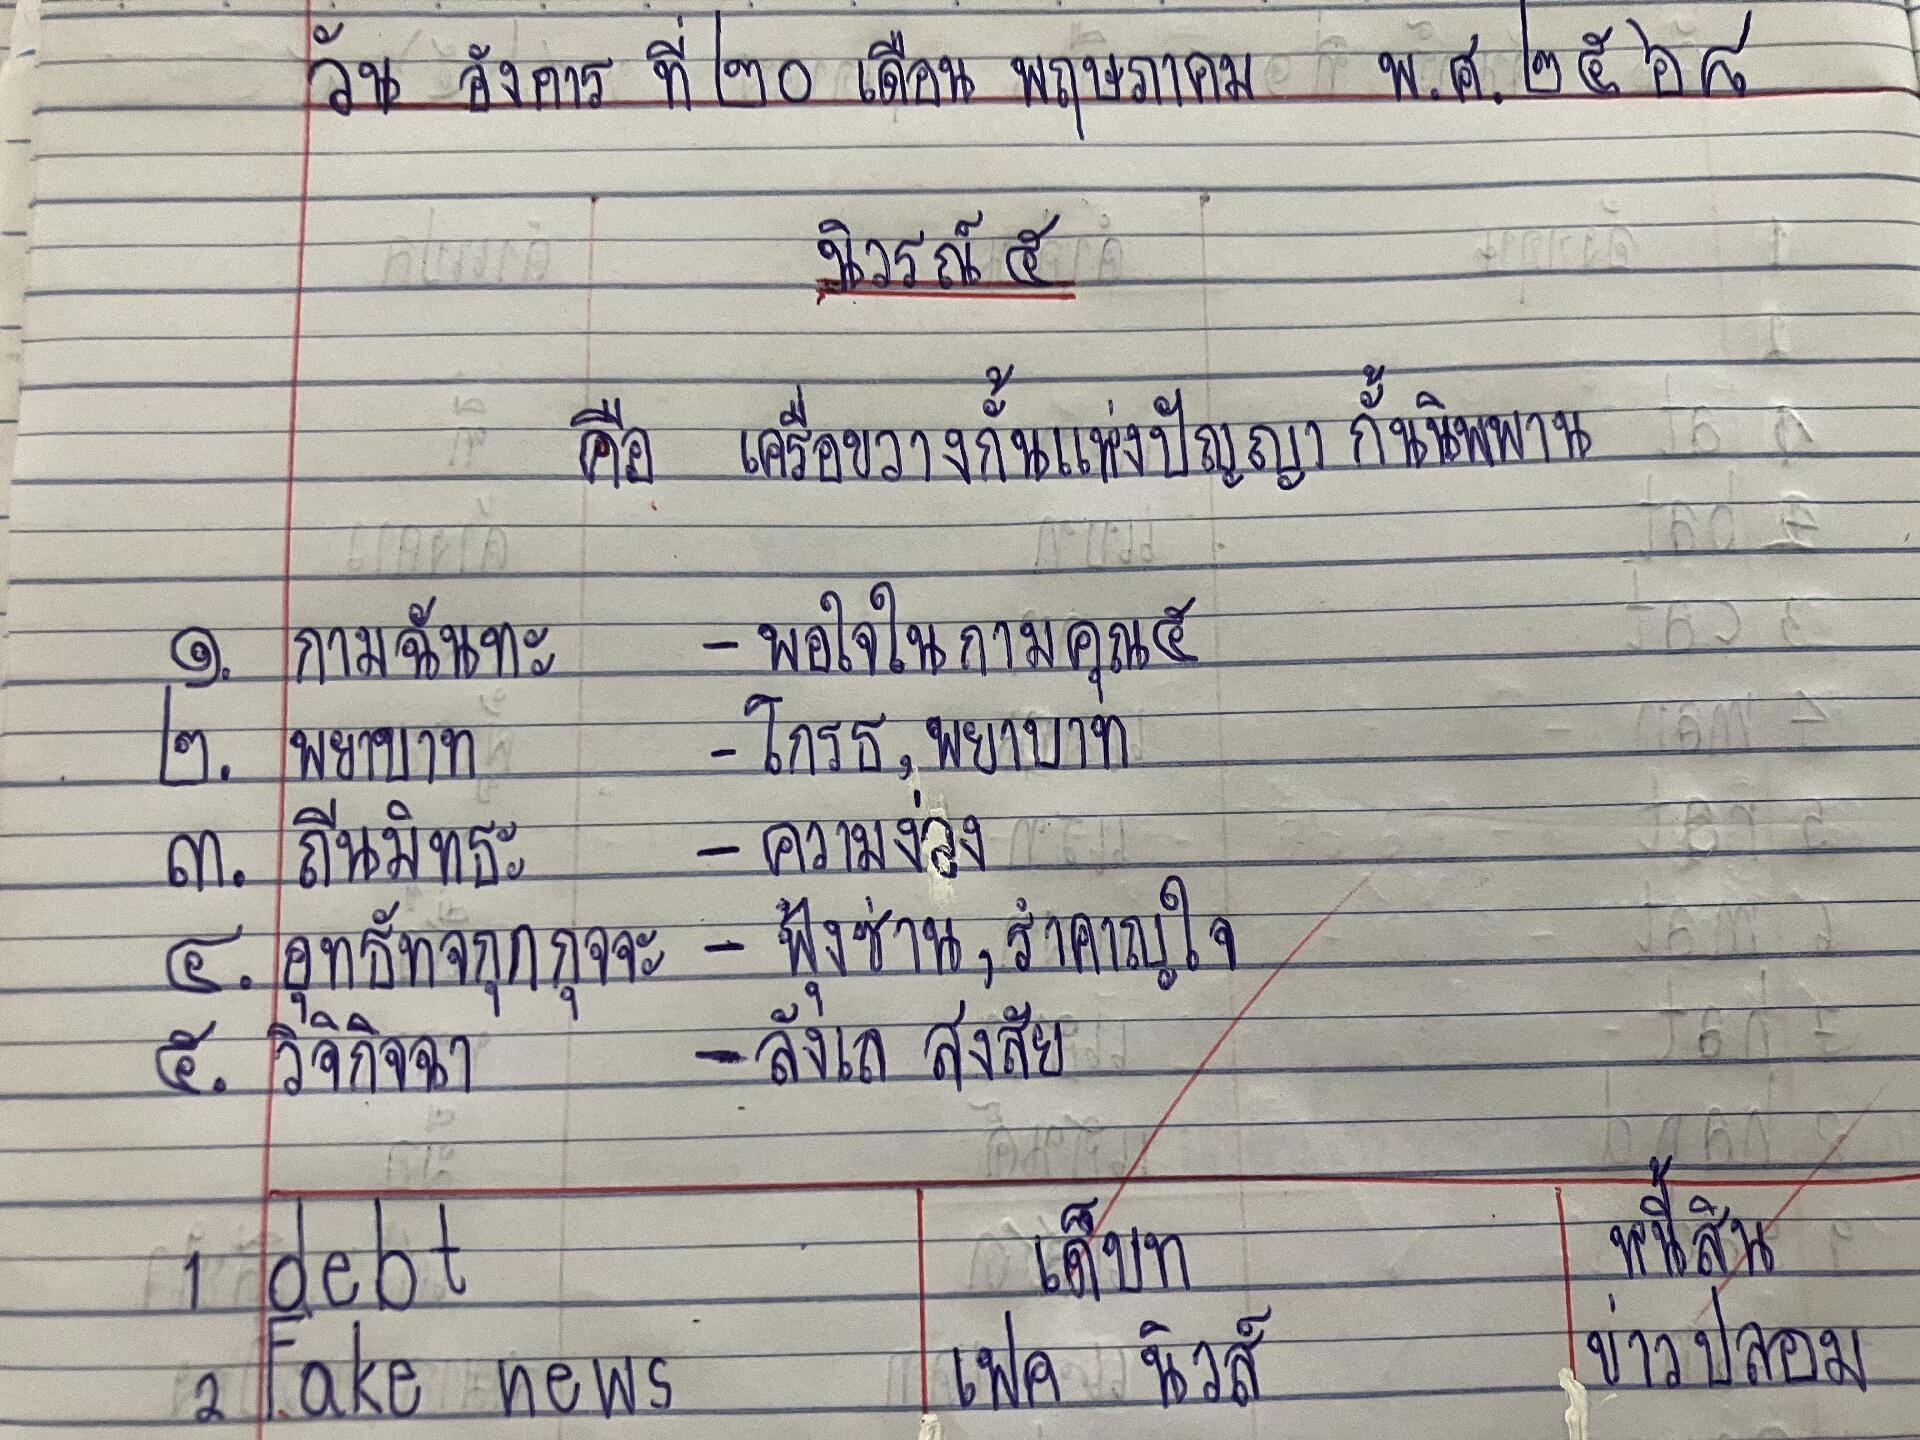 วัน อังคาร ที่ ๒๐ เดือน พฤษภาคม พ.ศ.๒๕๖๘
นิวรณ์ ๕
คือ เครื่อขวางกั้นแห่งปัญญา กั้นนิพพาน
๑. กามฉันทะ - พอใจในกามคุณ๕
๒. พยาบาท - โกรธ, พยาบาท
๓. ถีนมิทธะ - ความง่วง
๔. อุทธัทจกุกกุจจะ - ฟุ้งซ่าน, รำคาญใจ
๕. วิจิกิจฉา - ลังเล สงสัย
1 debt เด็บท หนี้สิน
2 Fake news เฟค นิวส์ ข่าวปลอม